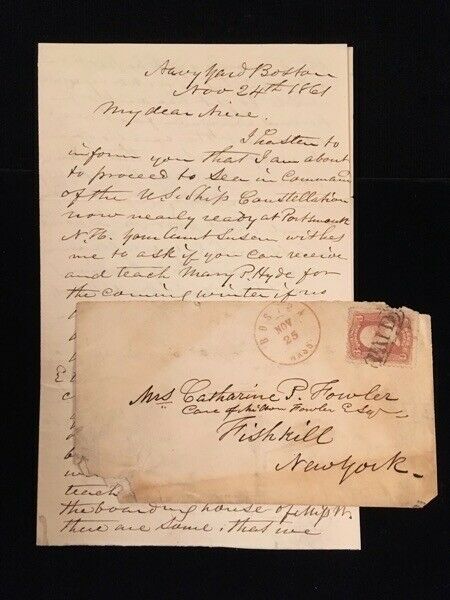 Navy Yard Boston
Nov 24th 1861
My dear Niece.
I hasten to
inform you that I am about
to proceed to Sea in Command
of the U.S. Ship Constellation
now nearly ready at Portsmouth
N.H. Your Aunt Susan wishes
me to ask if you can receive
and teach Mary P. Hyde for
the coming winter if no
teach
the boarding house of Miss W.
there are some, that we
BOSTON
NOV
25
MASS
PAID
Mrs. Catharine P. Fowler
Care of Milton Fowler Esqr
Fishkill
New York